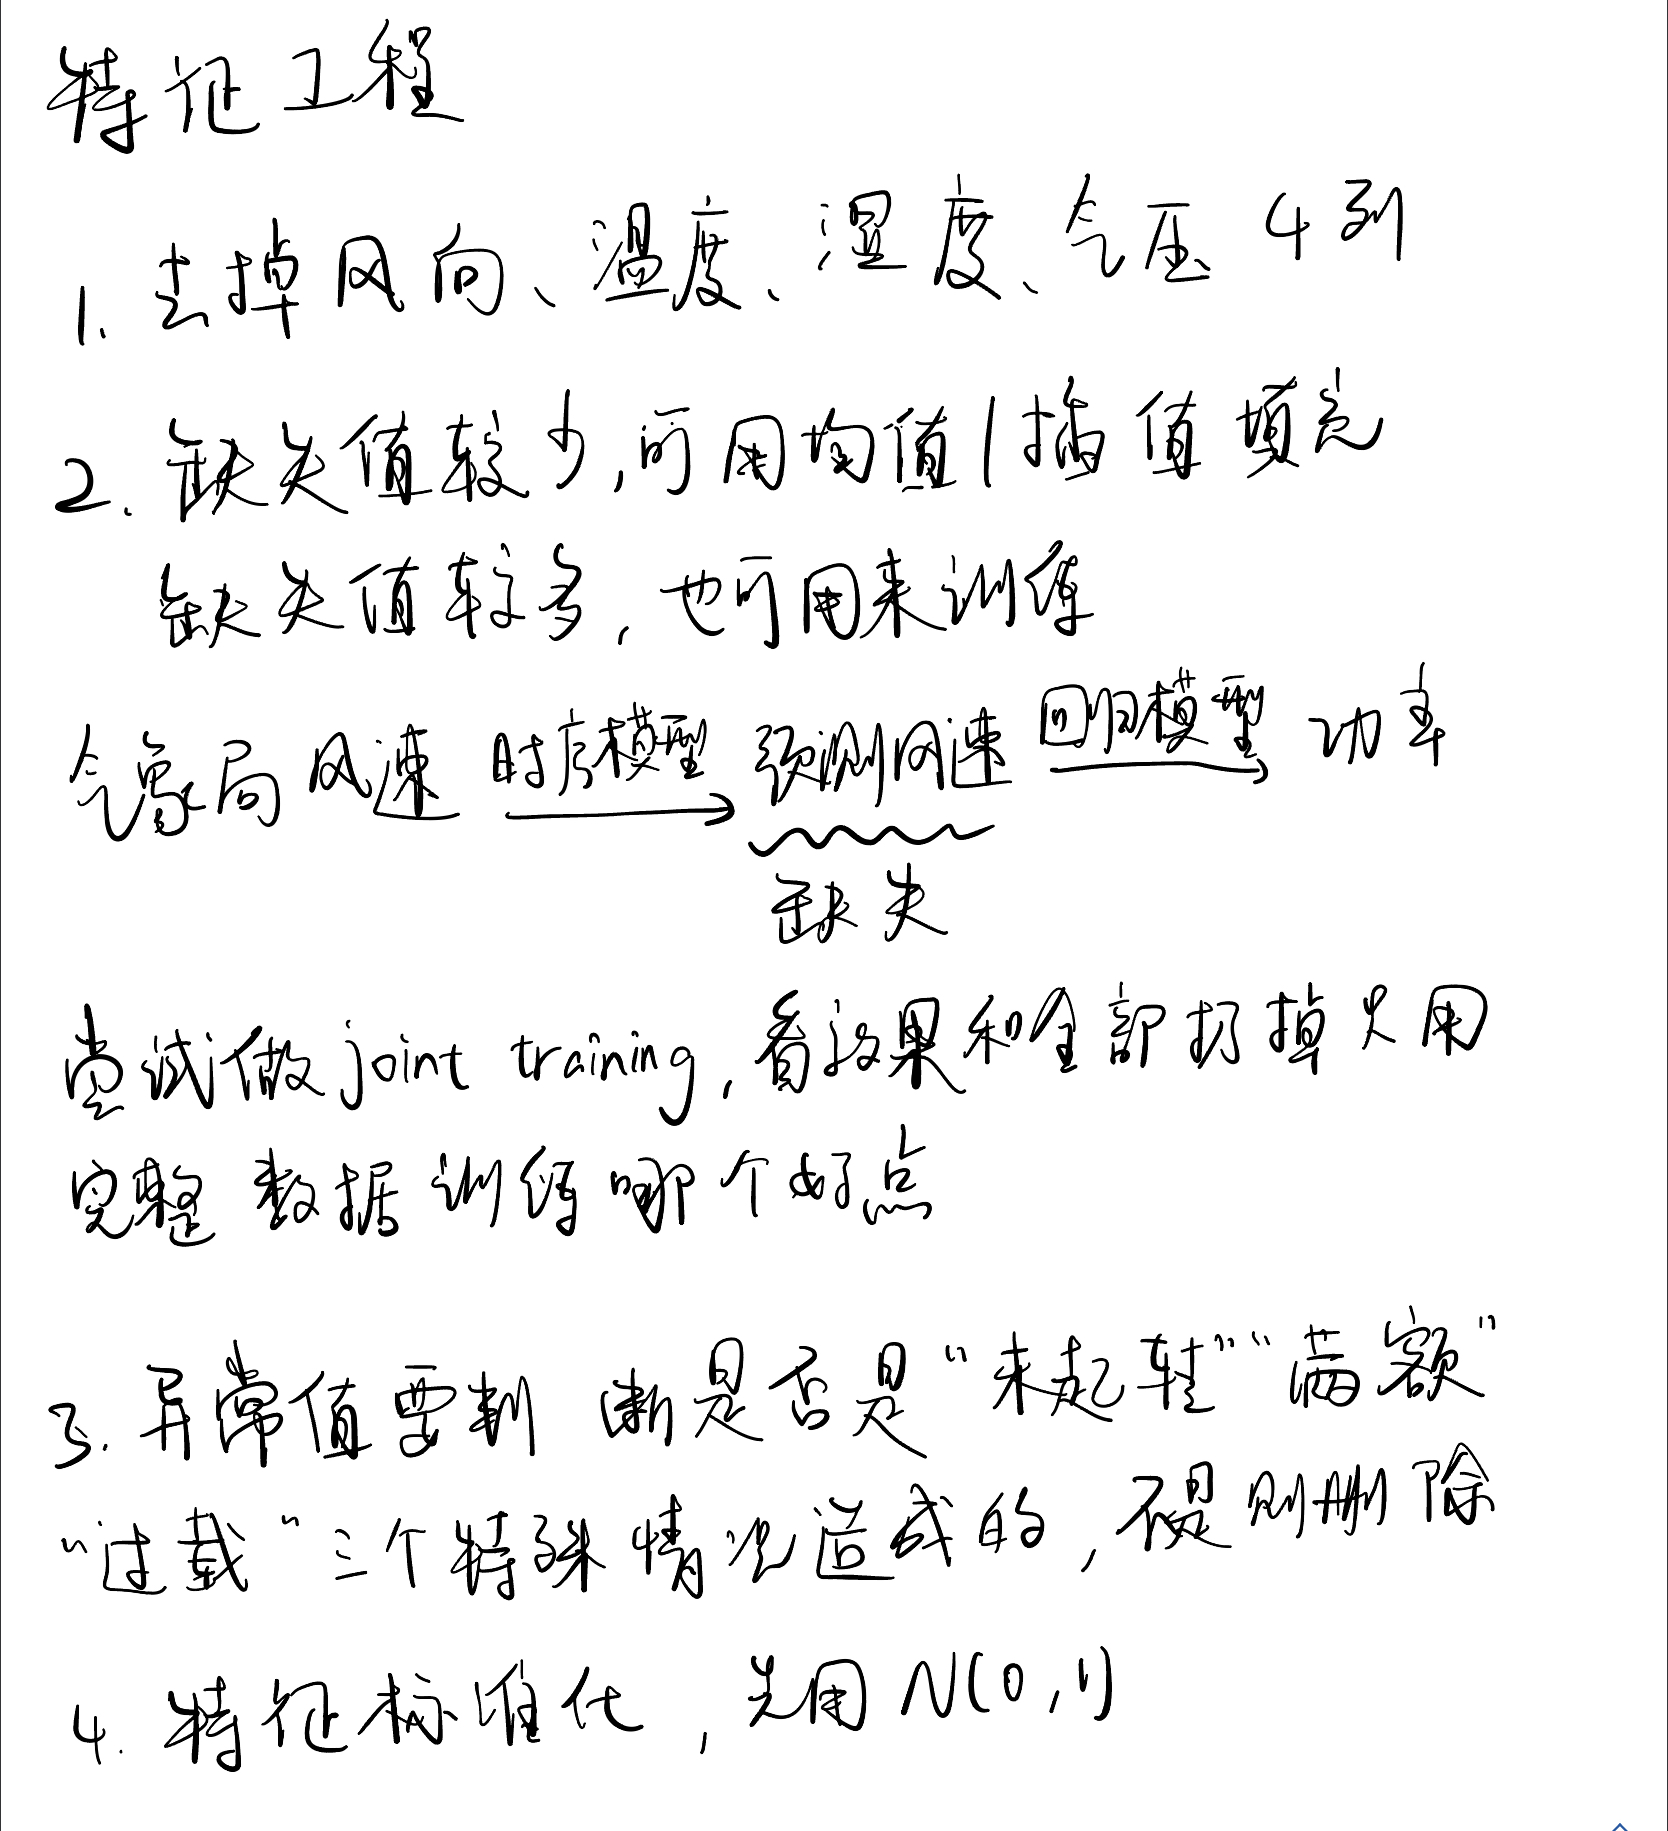 特征工程
1. 去掉风向、温度、湿度、气压 4列
2. 缺失值较少,可用均值/插值填充
缺失值较多,也可用来训练
气象局风速 时序模型 预测风速 回归模型 功率
缺失
尝试做joint training,看效果和全部扔掉只用
完整数据训练哪个好点
3. 异常值要判断是否是“未起转”“满额”
“过载”三个特殊情况造成的,不是则删除
4. 特征标准化,先用N(0,1)